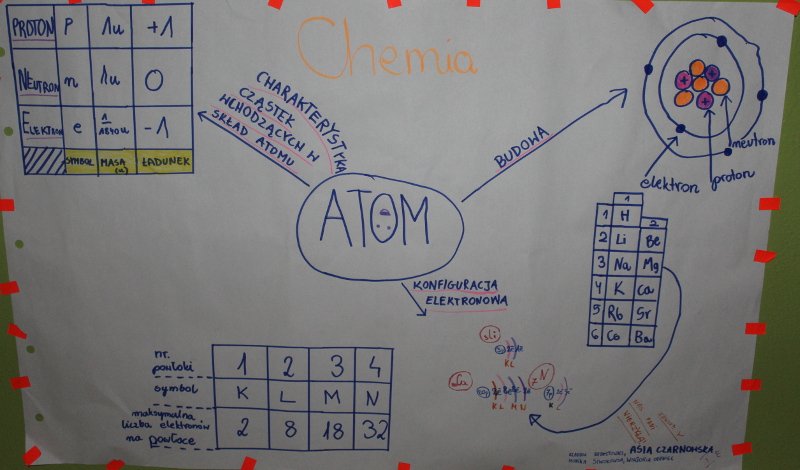 Chemia
PROTON P 1u +1
NEUTRON n 1u 0
ELEKTRON e 1/1840 u -1
SYMBOL MASA (u) ŁADUNEK
CHARAKTERYSTYKA
CZĄSTEK
WCHODZĄCYCH W
SKŁAD ATOMU
BUDOWA
neutron
proton
elektron
ATOM
KONFIGURACJA
ELEKTRONOWA
1
1 H 2
2 Li Be
3 Na Mg
4 K Ca
5 Rb Sr
6 Cs Ba
nr. powłoki 1 2 3 4
symbol K L M N
maksymalna
liczba elektronów
na powłoce 2 8 18 32
3Li
K L
7N
K L M N
K L
ASIA CZARNOWSKA